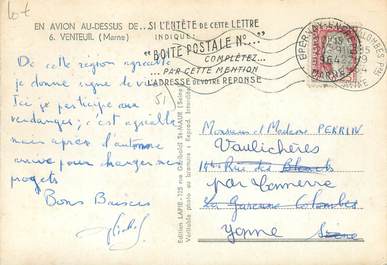 Lot
EN AVION AU-DESSUS DE...
6. VENTEUIL (Marne)
...SI L'ENTÊTE DE CETTE LETTRE
INDIQUE
"BOITE POSTALE N°..."
COMPLÉTEZ...
...PAR CETTE MENTION
L'ADRESSE DE VOTRE RÉPONSE
MARNE
De cette région agréable
je donne signe de vie
Ici je participe aux
vendanges; c'est agréable
mais après l'automne
arrive pour changer mes
projets
Bons Baisers
Edition LAPIE - 125 rue Garibaldi St-MAUR (Seine)
Véritable photo au bromure :
Monsieur et Madame PERRIN
Vaulichères
Rue des
par Tonnerre
La Garenne Colombes
Yonne Seine